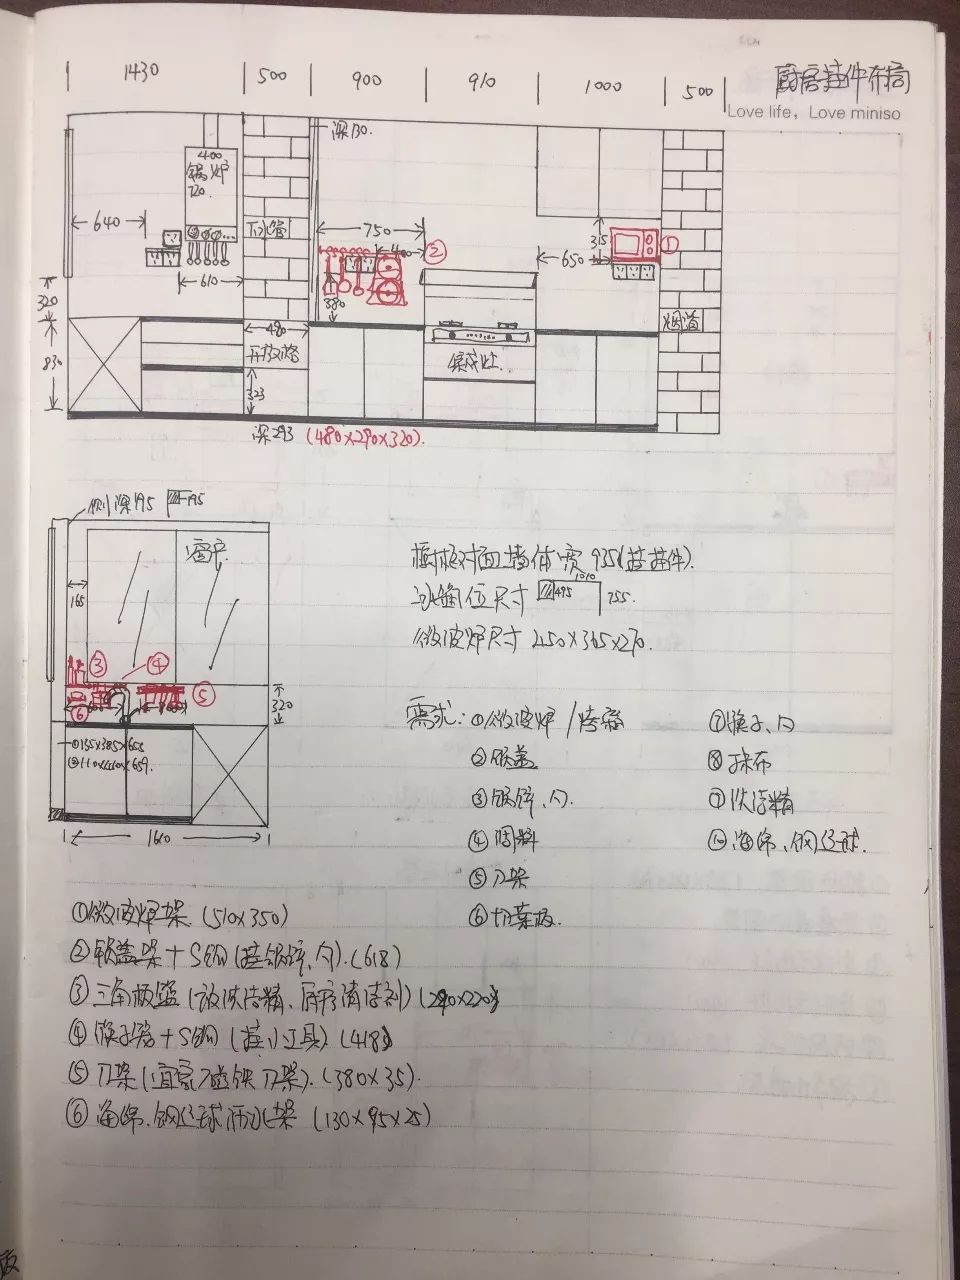 厨房挂件布局
Love life, Love miniso
1430 500 900 910 1000 500
深130.
400
锅炉
720.
640
下水管
750
400
②
315
①
650
610
380
320
830
480
开放格
323
集成灶
烟道
深293 (480×290×320).
侧深195 195
窗户
165
③ ④ ⑤
⑥
320
①135×385×655
②110×440×659.
1660
橱柜对面墙体宽 935(挂挂件).
冰箱位尺寸 495 1010 755.
微波炉尺寸 450×365×270.
需求: ①微波炉/烤箱
②锅盖
③锅铲、勺.
④调料
⑤刀架
⑥切菜板.
⑦筷子、勺
⑧抹布
⑨洗洁精
⑩海绵、钢丝球.
①微波炉架 (510×350)
②锅盖架+S钩(挂锅铲、勺).(618)
③三角板篮 (放洗洁精、厨房清洁剂) (290×220)
④筷子筒+S钩 (挂小工具) (418)
⑤刀架(宜家磁铁刀架).(380×35).
⑥海绵.钢丝球沥水架 (130×95×25)